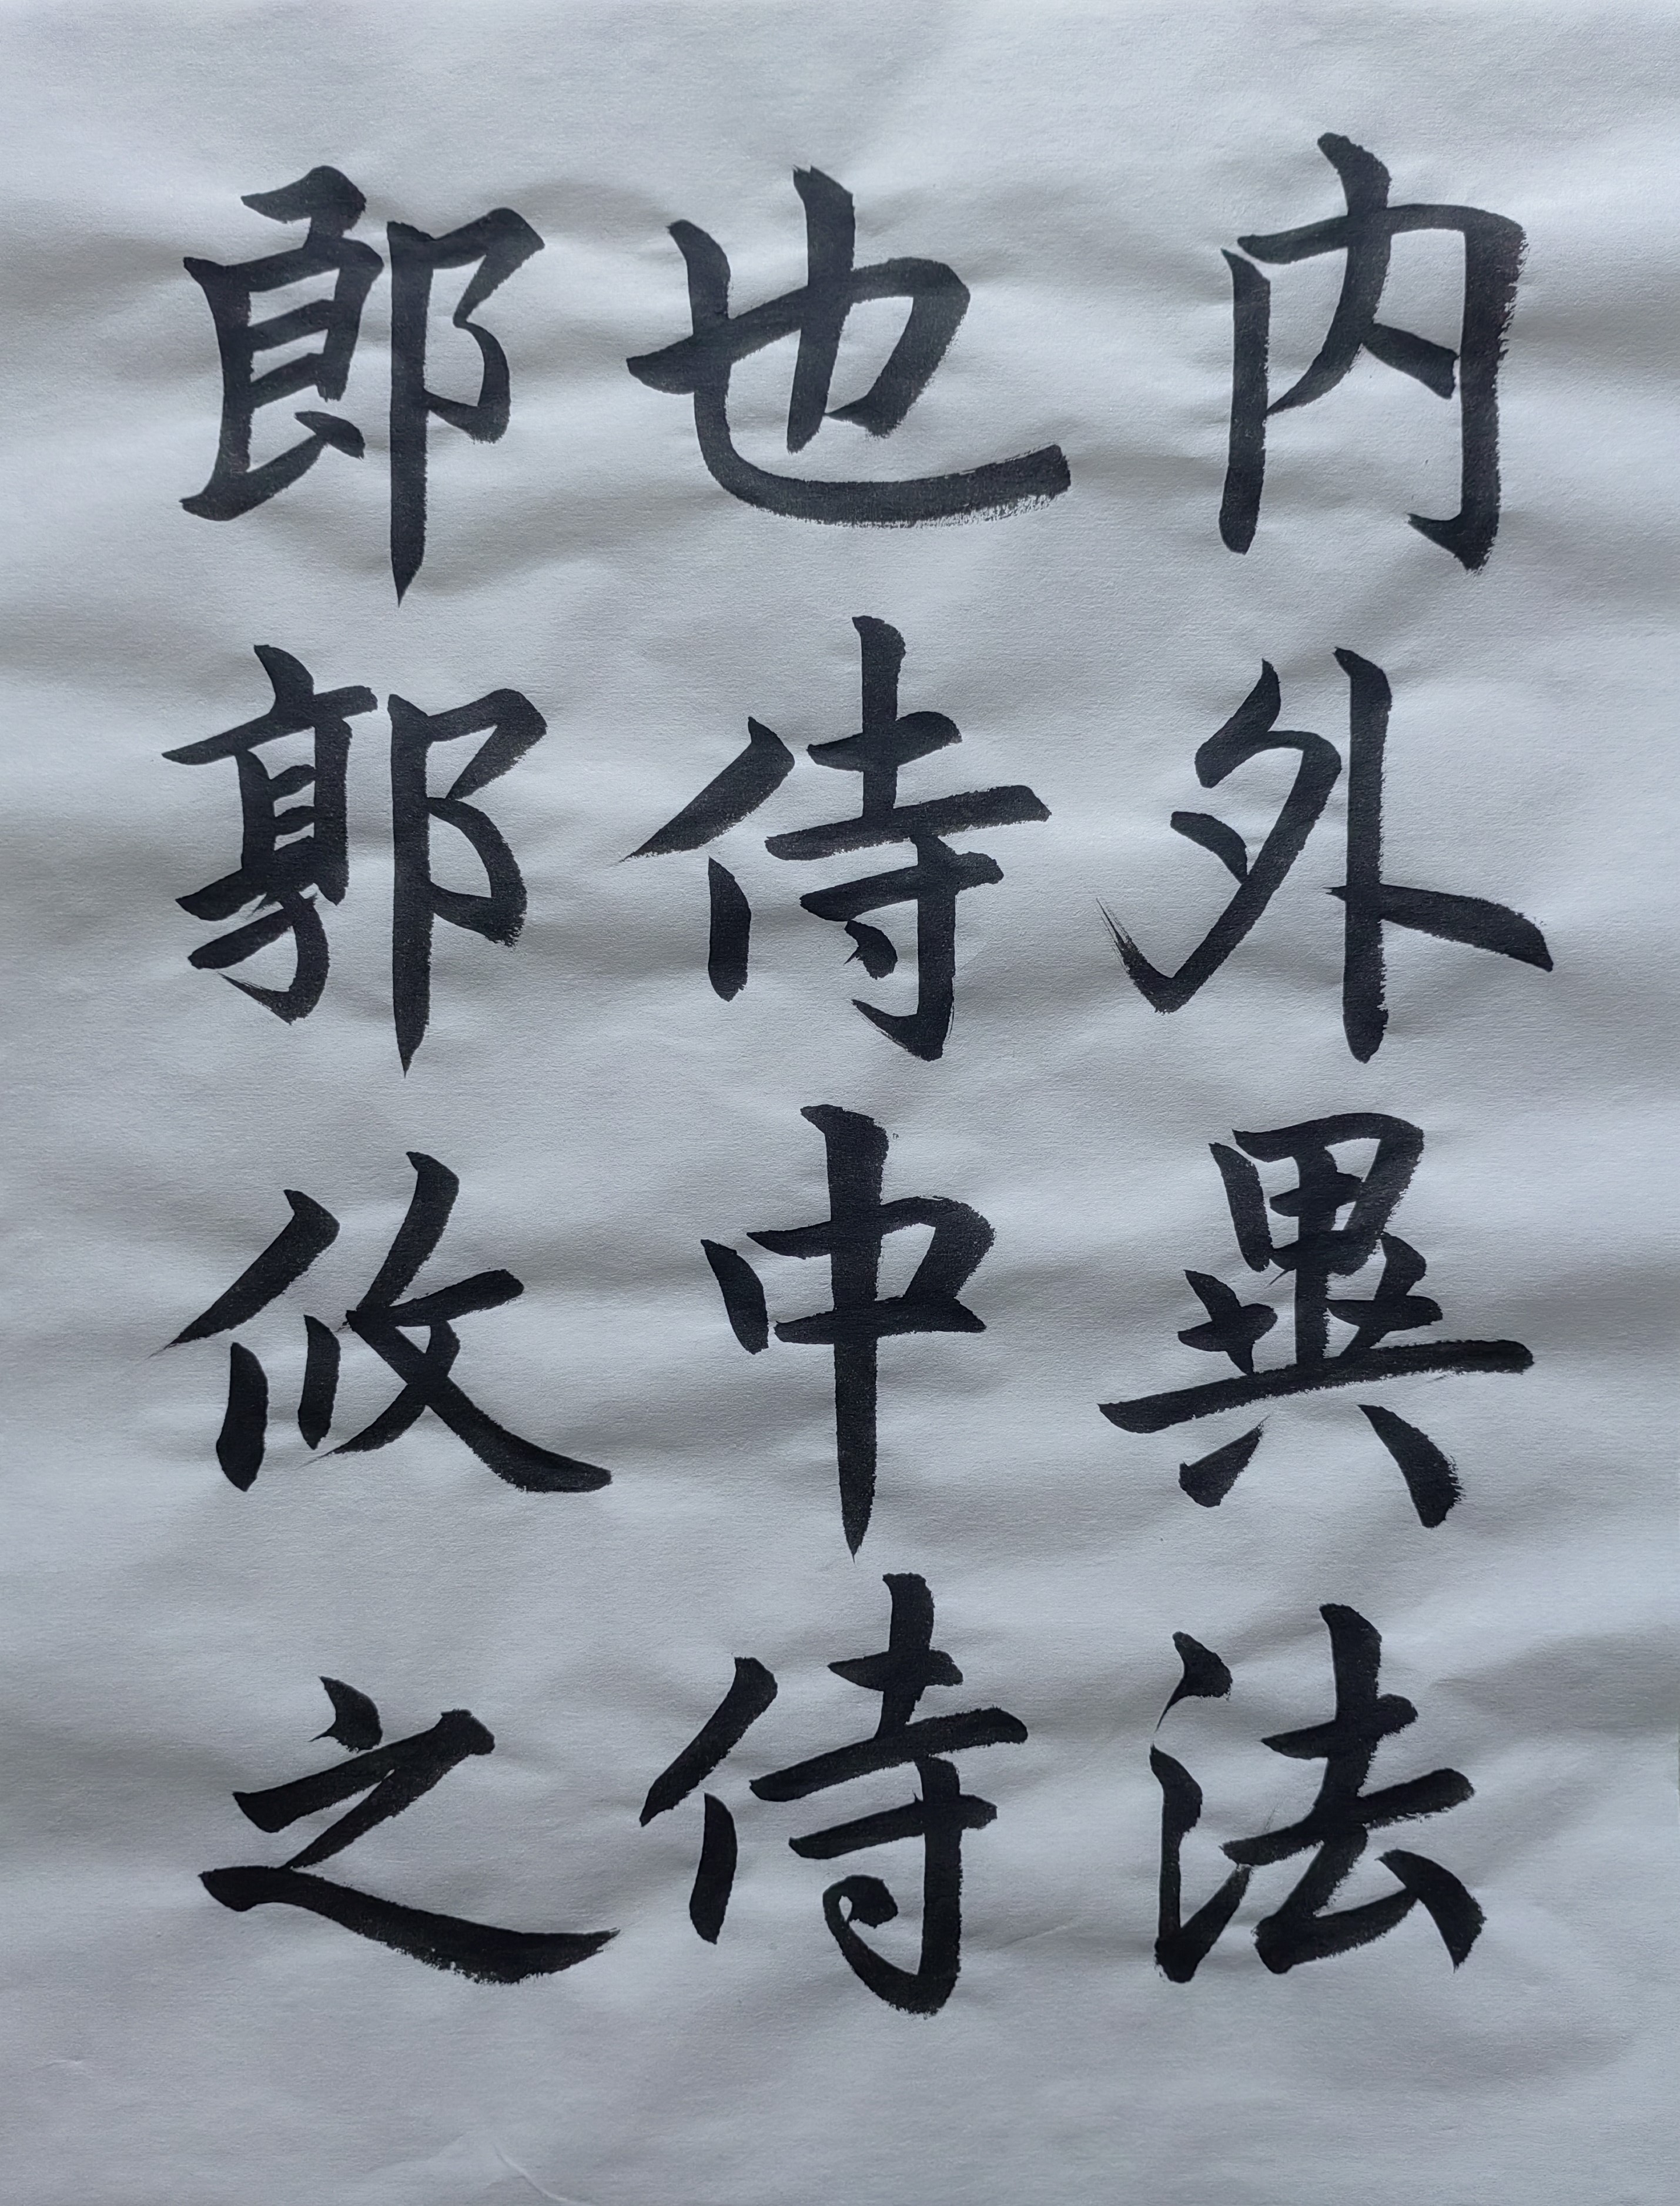 内外異法
也侍中侍
郎郭攸之